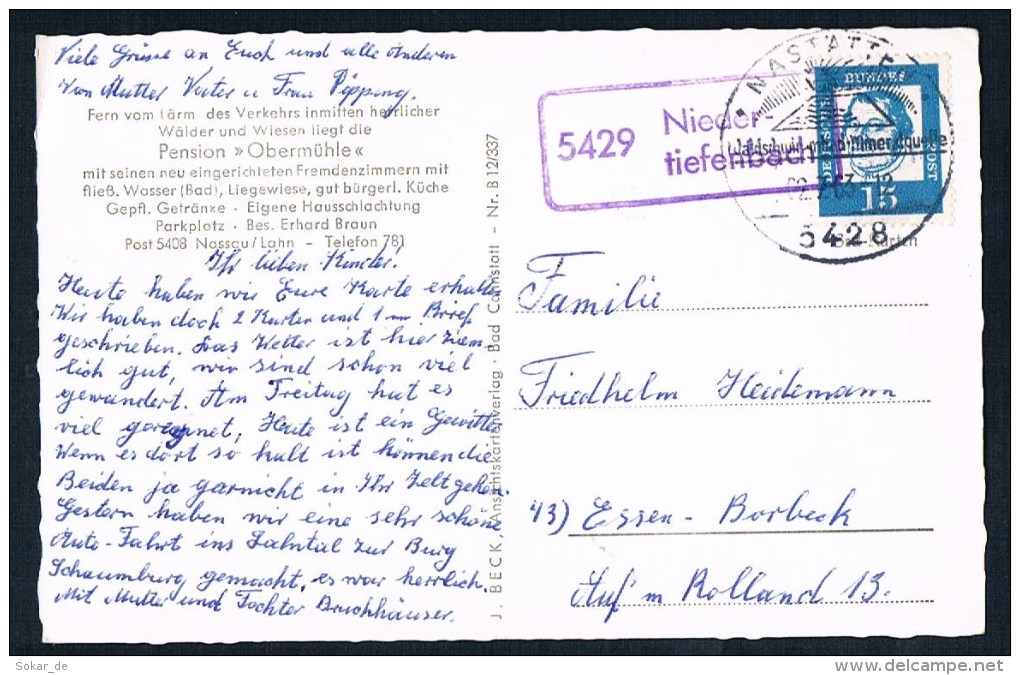 Viele Grüsse an Euch und alle Anderen
Von Mutter Vater u Frau Pöpping.
Fern vom Lärm des Verkehrs inmitten herrlicher
Wälder und Wiesen liegt die
Pension »Obermühle«
mit seinen neu eingerichteten Fremdenzimmern mit
fließ. Wasser (Bad), Liegewiese, gut bürgerl. Küche
Gepfl. Getränke · Eigene Hausschlachtung
Parkplatz · Bes. Erhard Braun
Post 5408 Nassau/Lahn – Telefon 781
Ihr lieben Kinder!
Heute haben wir Eure Karte erhalten
Wir haben doch 2 Karten und 1 Brief
geschrieben. Das Wetter ist hier ziem
lich gut, wir sind schon viel
gewandert. Am Freitag hat es
viel geregnet, Heute ist ein Gewitter
Wenn es dort so kalt ist können die
Beiden ja garnicht in Ihr Zelt gehen.
Gestern haben wir eine sehr schöne
Auto-Fahrt ins Lahntal zur Burg
Schaumburg gemacht, es war herrlich.
Mit Mutter und Tochter Bruchhäuser.
J. BECK, Ansichtskartenverlag · Bad Cannstatt – Nr. B 12/337
5429 Nieder
tiefenbach
NASTÄTTEN
5428
DEUTSCHE BUNDESPOST
15
Familie
Friedhelm Heidemann
43) Essen-Borbeck
Auf'm Rolland 13.
Sokar_de
www.delcampe.net